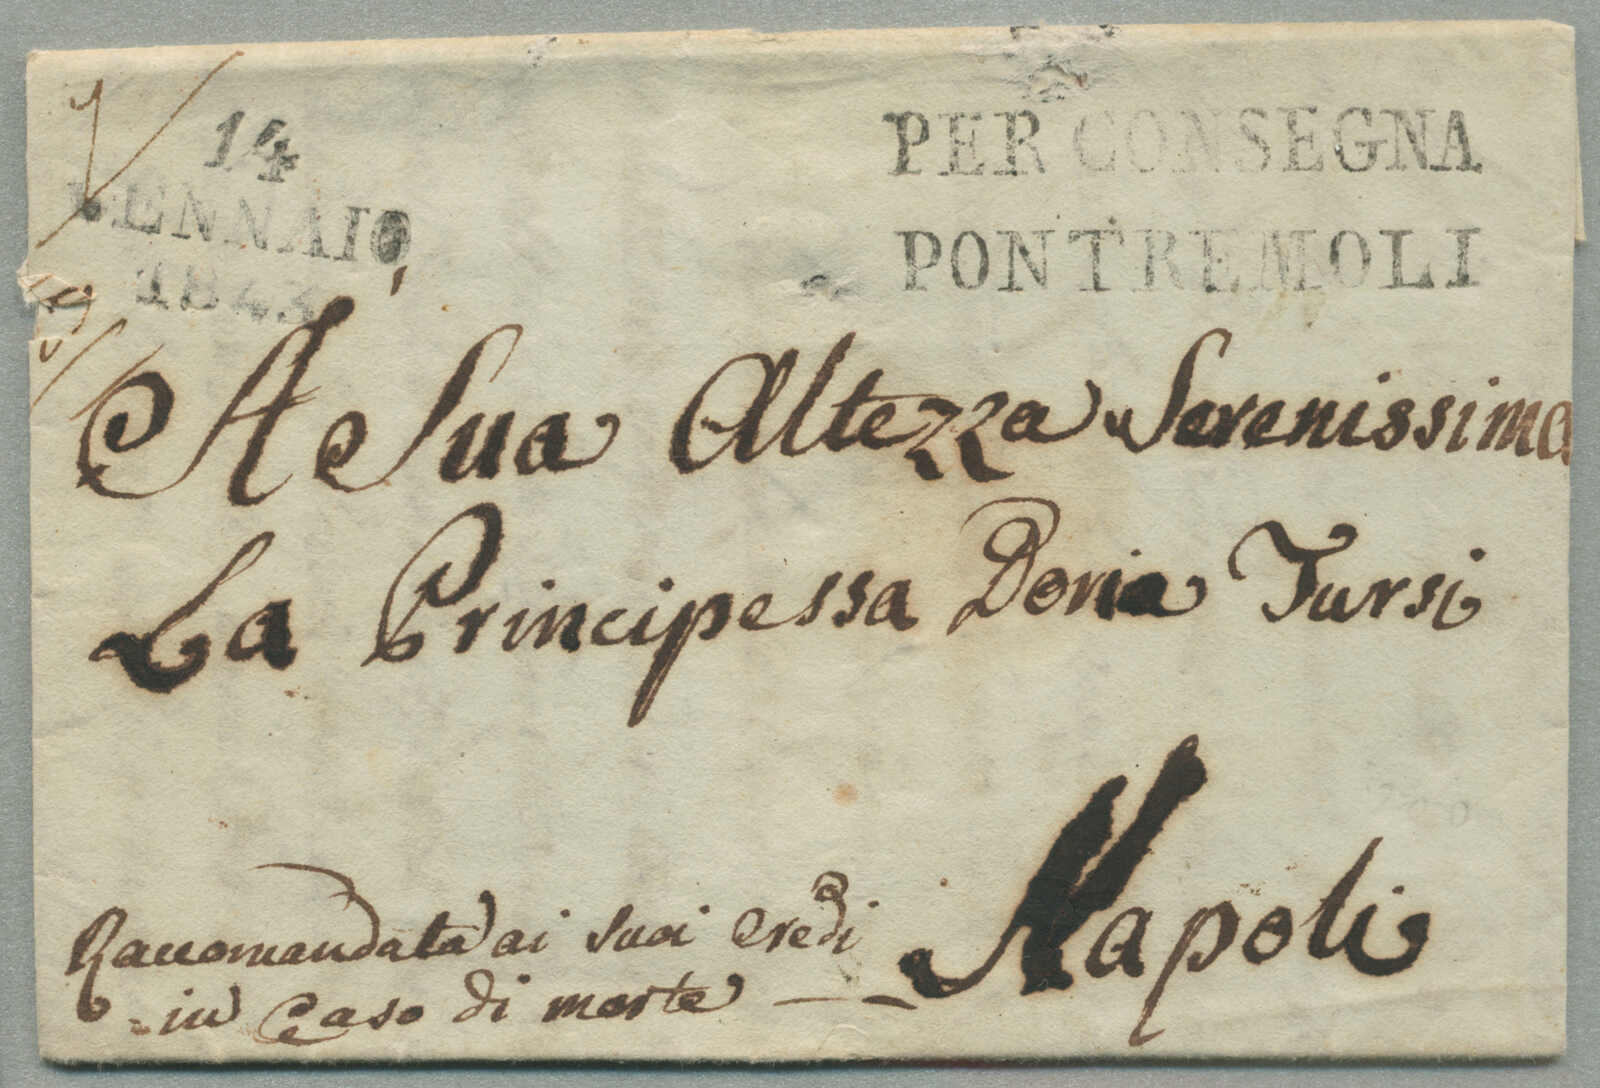 14
GENNAIO
1843
PER CONSEGNA
PONTREMOLI
A Sua Altezza Serenissima
La Principessa Doria Tursi
Napoli
Raccomandata ai suoi eredi
in Caso di morte